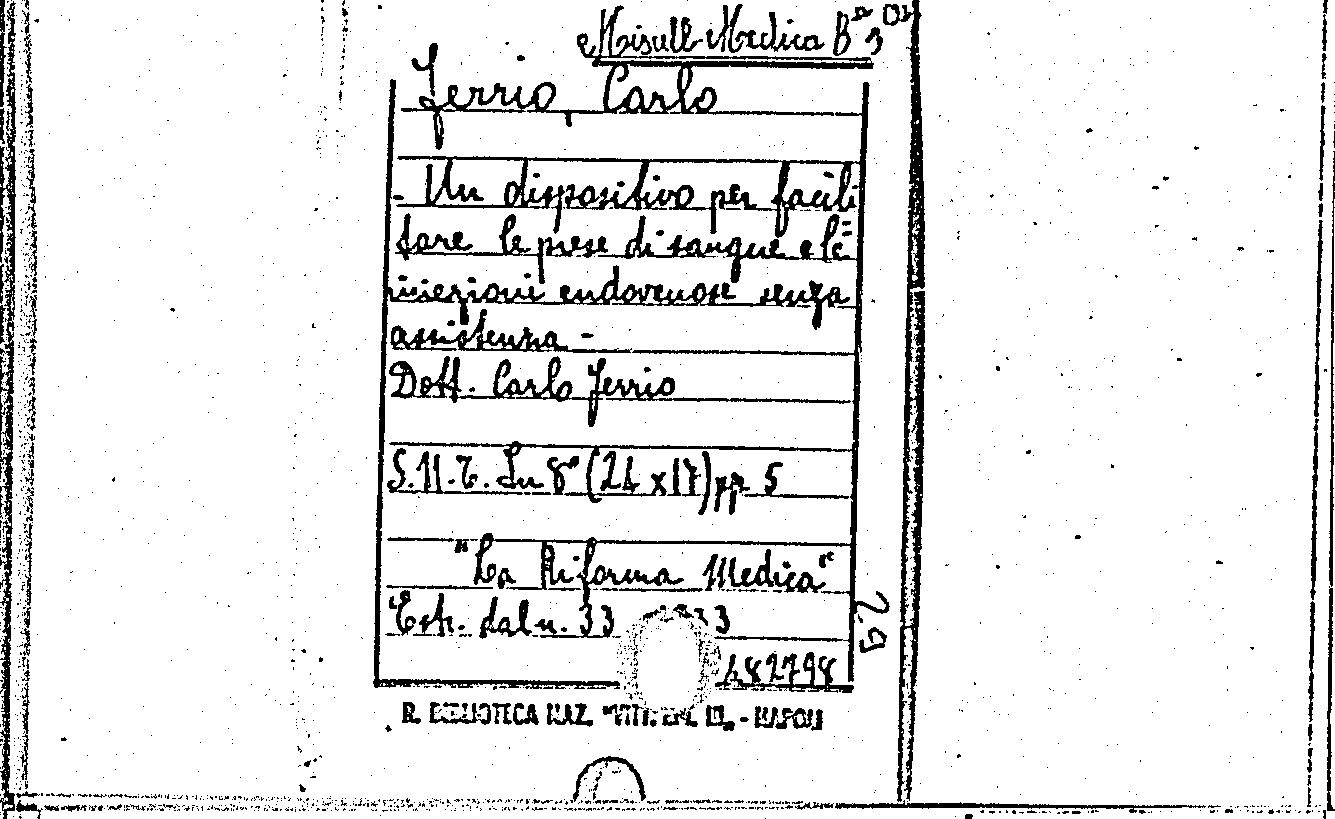 Miscell. Medica Ba 3
Ferrio, Carlo
- Un dispositivo per facili
tare le prese di sangue e le
iniezioni endovenose senza
assistenza -
Dott. Carlo Ferrio
S.N.T. In 8° (24 x 17) pp 5
"La Riforma Medica"
Estr. dal n. 33 1933
482798
29
R. BIBLIOTECA NAZ. "VITT. EM. III„ - NAPOLI